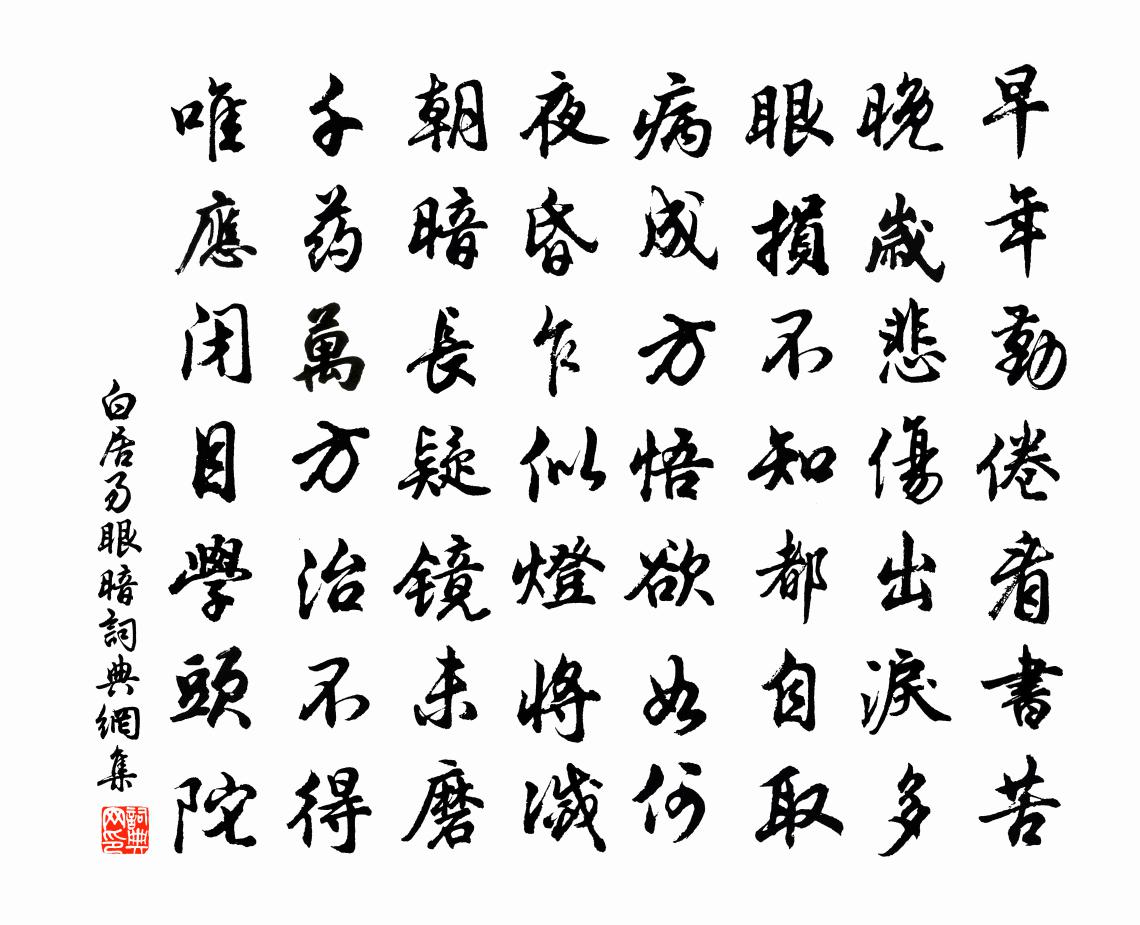 早年勤倦看書苦
晚歲悲傷出淚多
眼損不知都自取
病成方悟欲如何
夜昏乍似燈將滅
朝暗長疑鏡未磨
千药萬方治不得
唯應闭目學頭陀
白居易眼暗詞典網集
詞典网印